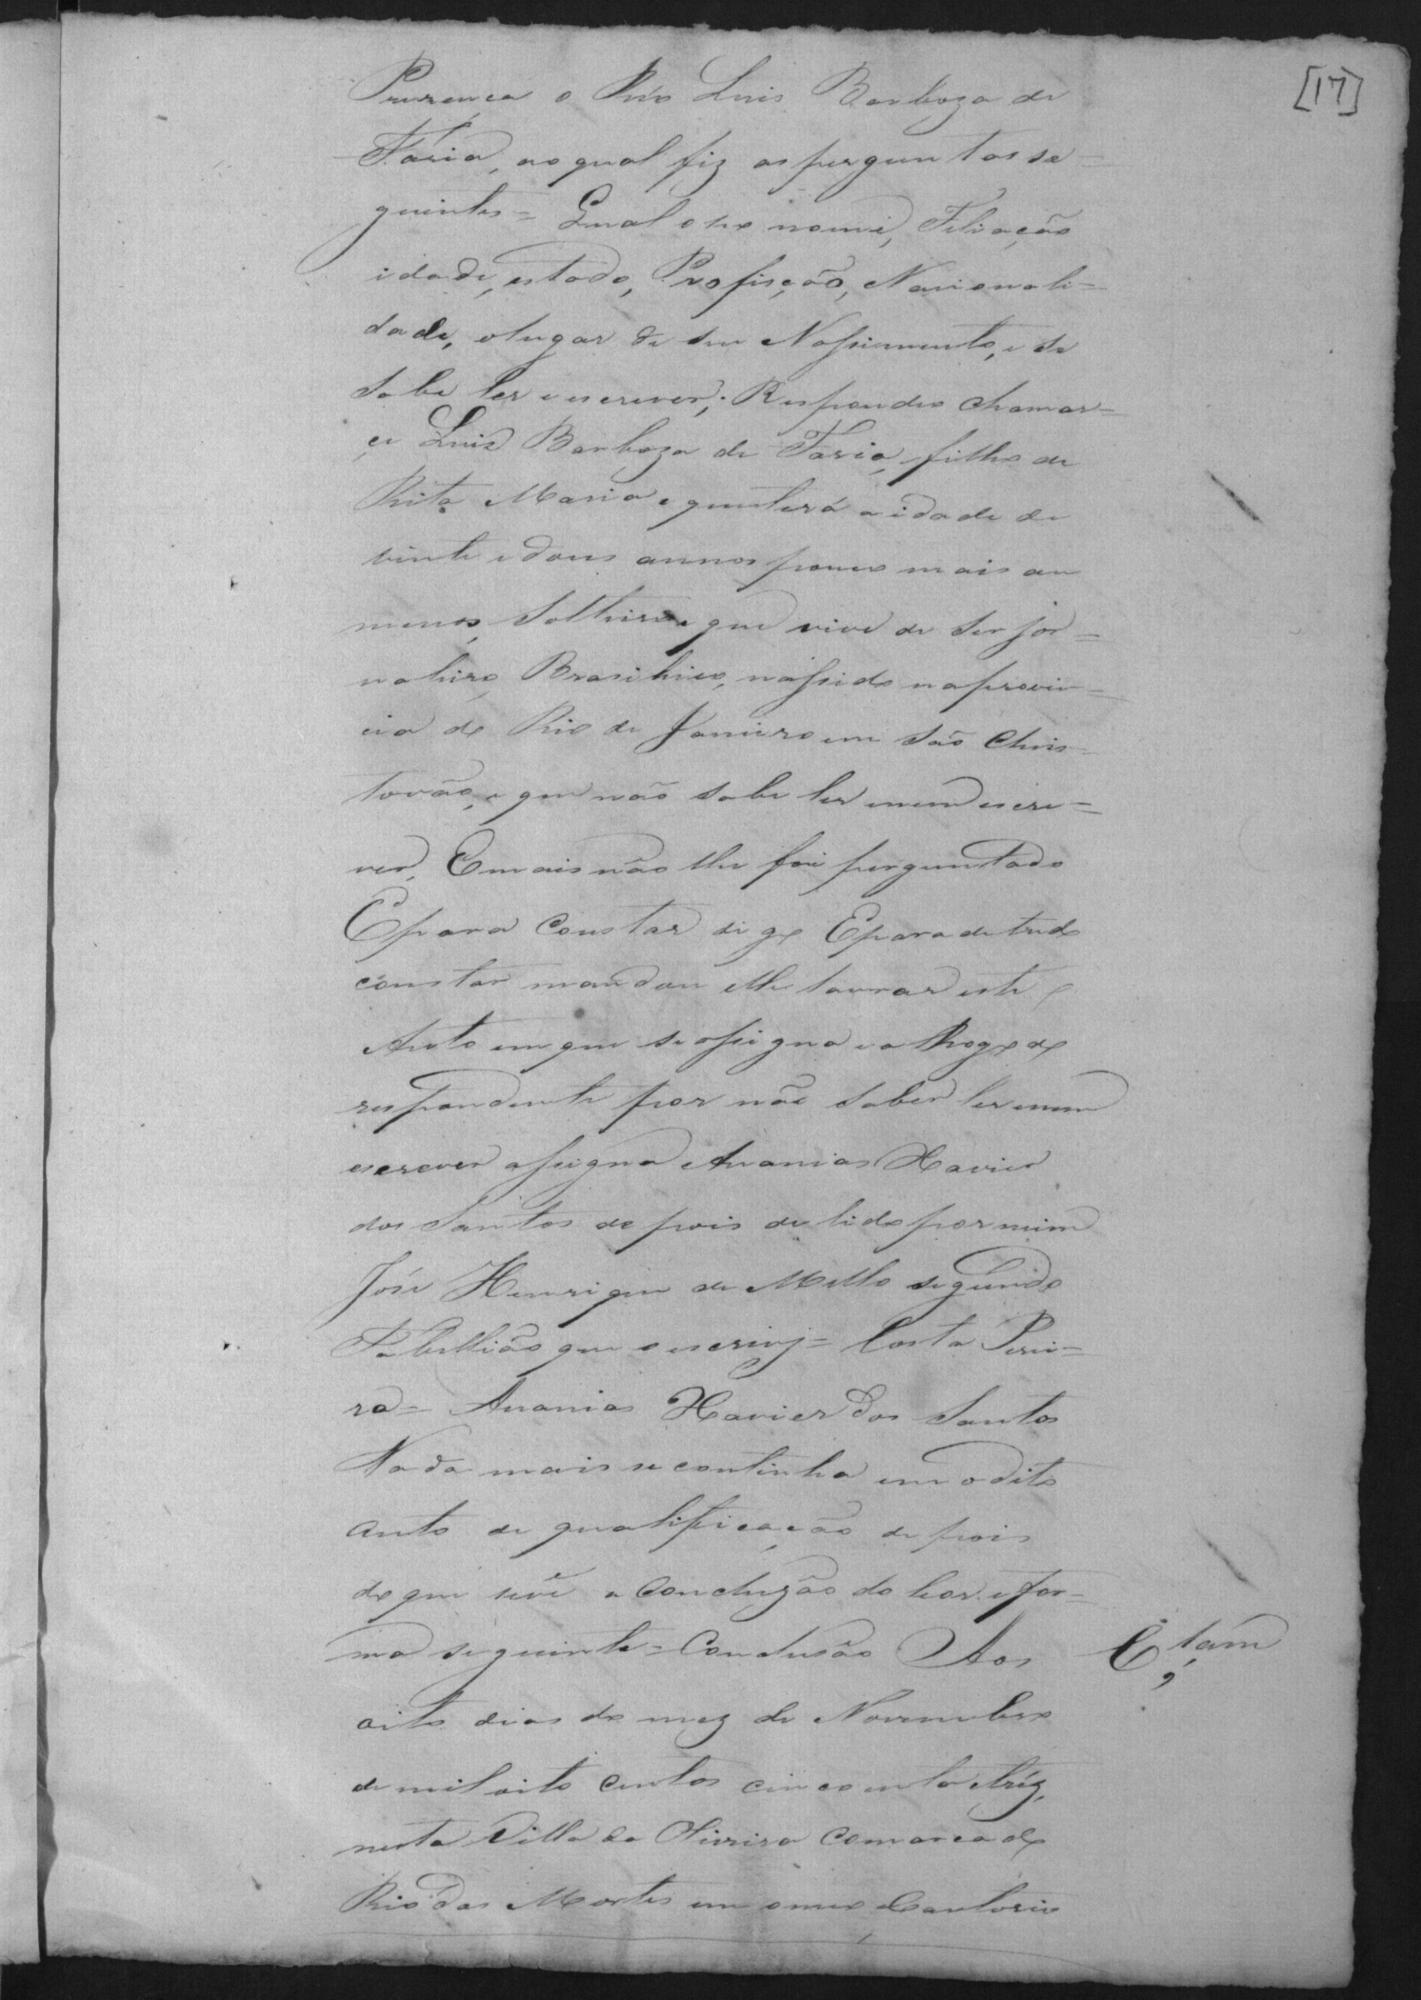 [17]
Prezença o Reo Luis Barboza de
Faria, ao qual fiz as perguntas se=
guintes= Qual o seo nome, Filiação
idade, estado, Profisção, Nacionali=
dade, o lugar de seu Nassimento, e se
sabe ler e escrever; Respondeo chamar=
çe Luis Barboza de Faria, filho de
Rita Maria e que terá a idade de
vinte e dous annos pouco mais ou
menos, Solteiro e que vive de ser jor=
naleiro, Brasileiro, nassido na provin=
cia do Rio de Janeiro em São Chris=
tovão, e que não sabe ler e nem escre=
ver, E mais não lhe foi perguntado
E para constar digo E para de tudo
constar mandou elle lavrar este
Auto em que se assigna e a Rogo do
respondente por não saber ler e nem
escrever assigna Ananias Xavier
dos Santos depois de lido por mim
José Henrique de Mello segundo
Tabellião que o escrivj= Costa Perei=
ra= Ananias Xavier dos Santos
Nada mais se continha em o dito
auto de qualificação depois
do que se vê a Concluzão do theor e for=
ma seguinte= Conclusão Aos
oito dias do mez de Novembro
de mil oito centos cincoenta e tréz,
nesta Villa da Oliveira comarca do
Rio das Mortes em o meo Cartorio